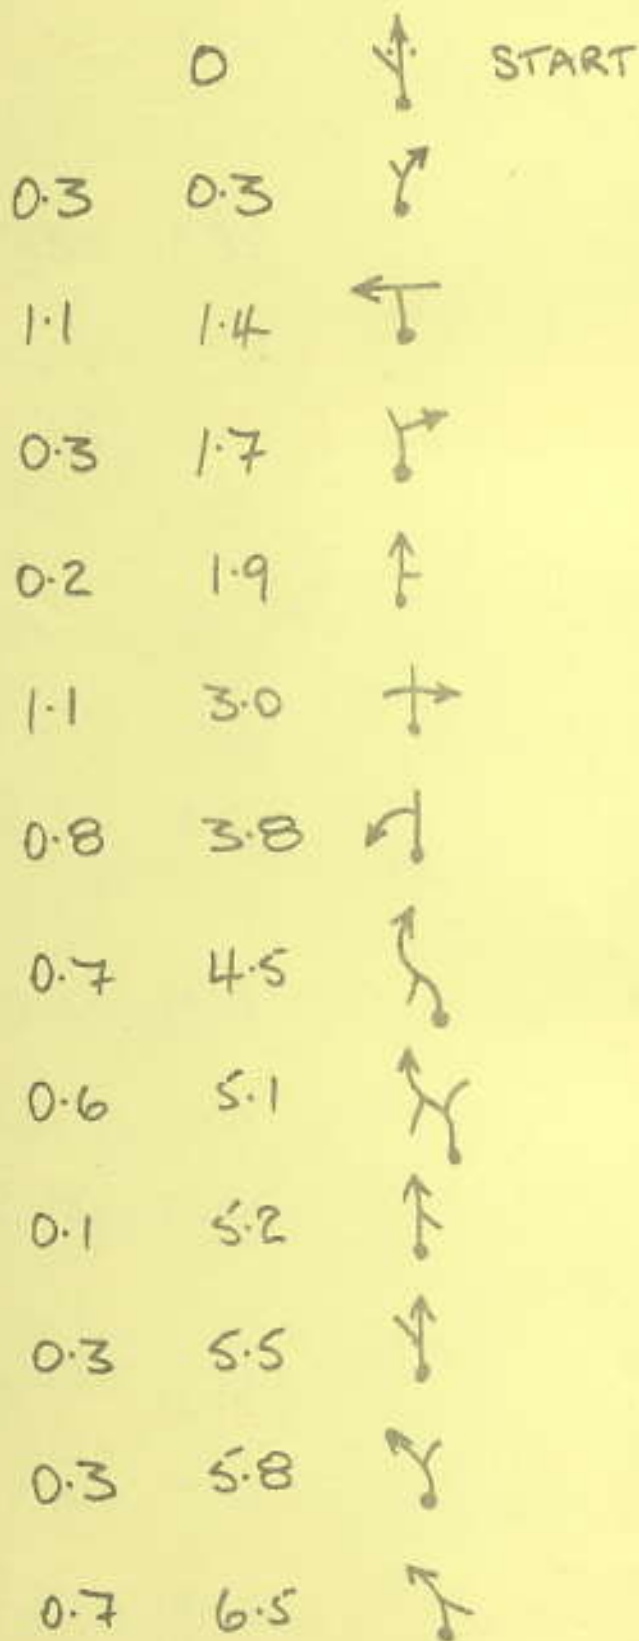 0 START
0.3 0.3
1.1 1.4
0.3 1.7
0.2 1.9
1.1 3.0
0.8 3.8
0.7 4.5
0.6 5.1
0.1 5.2
0.3 5.5
0.3 5.8
0.7 6.5